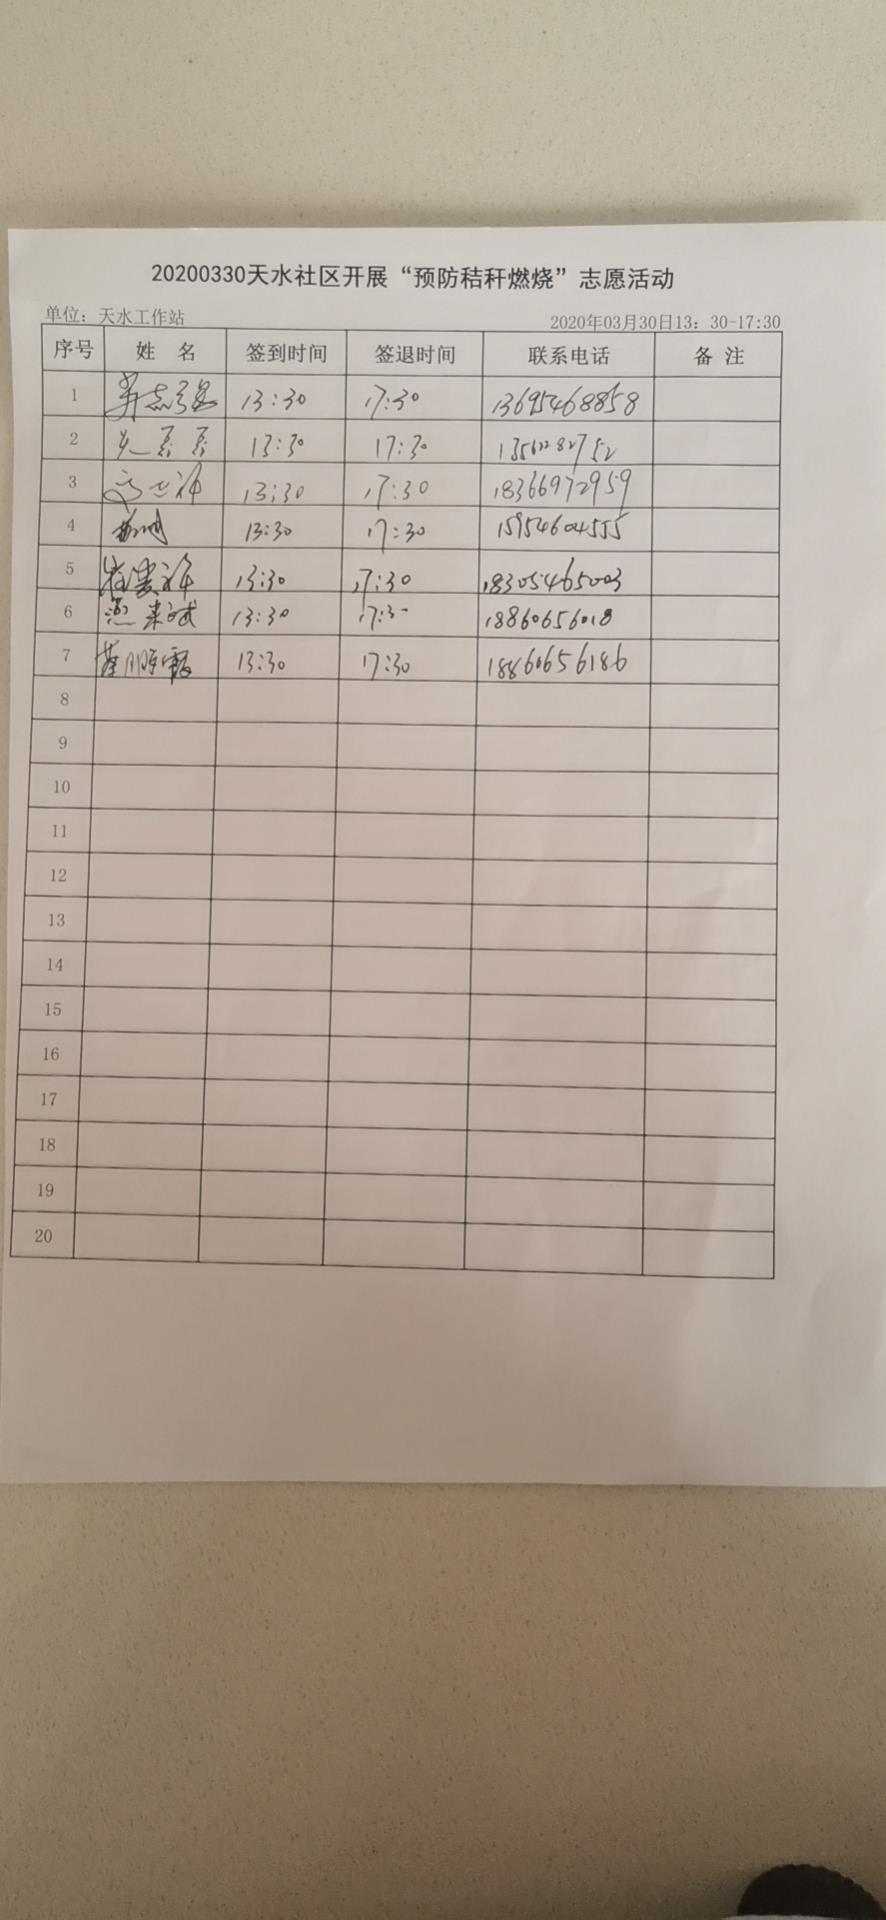 20200330天水社区开展“预防秸秆燃烧”志愿活动
单位：天水工作站 2020年03月30日13：30-17:30
序号 姓 名 签到时间 签退时间 联系电话 备 注
1 13:30 17:30 13695468858
2 13:30 17:30
3 13:30 17:30 18366972959
4 13:30 17:30 15954604555
5 13:30 17:30 18305465003
6 13:30 17:3 18860656018
7 13:30 17:30 18860656186
8
9
10
11
12
13
14
15
16
17
18
19
20